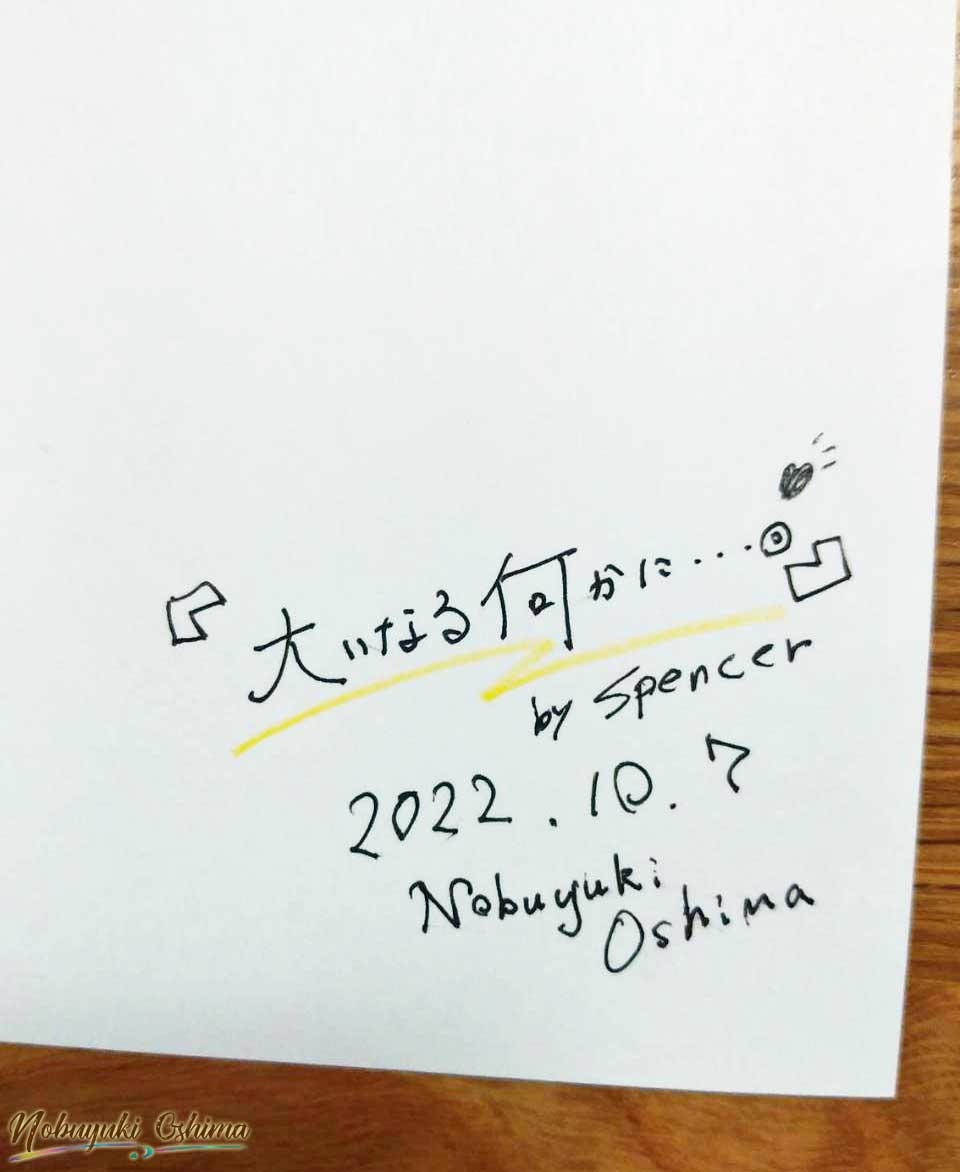 『大いなる何かに...。』
by Spencer
2022.10.7
Nobuyuki
Oshima
Nobuyuki Oshima